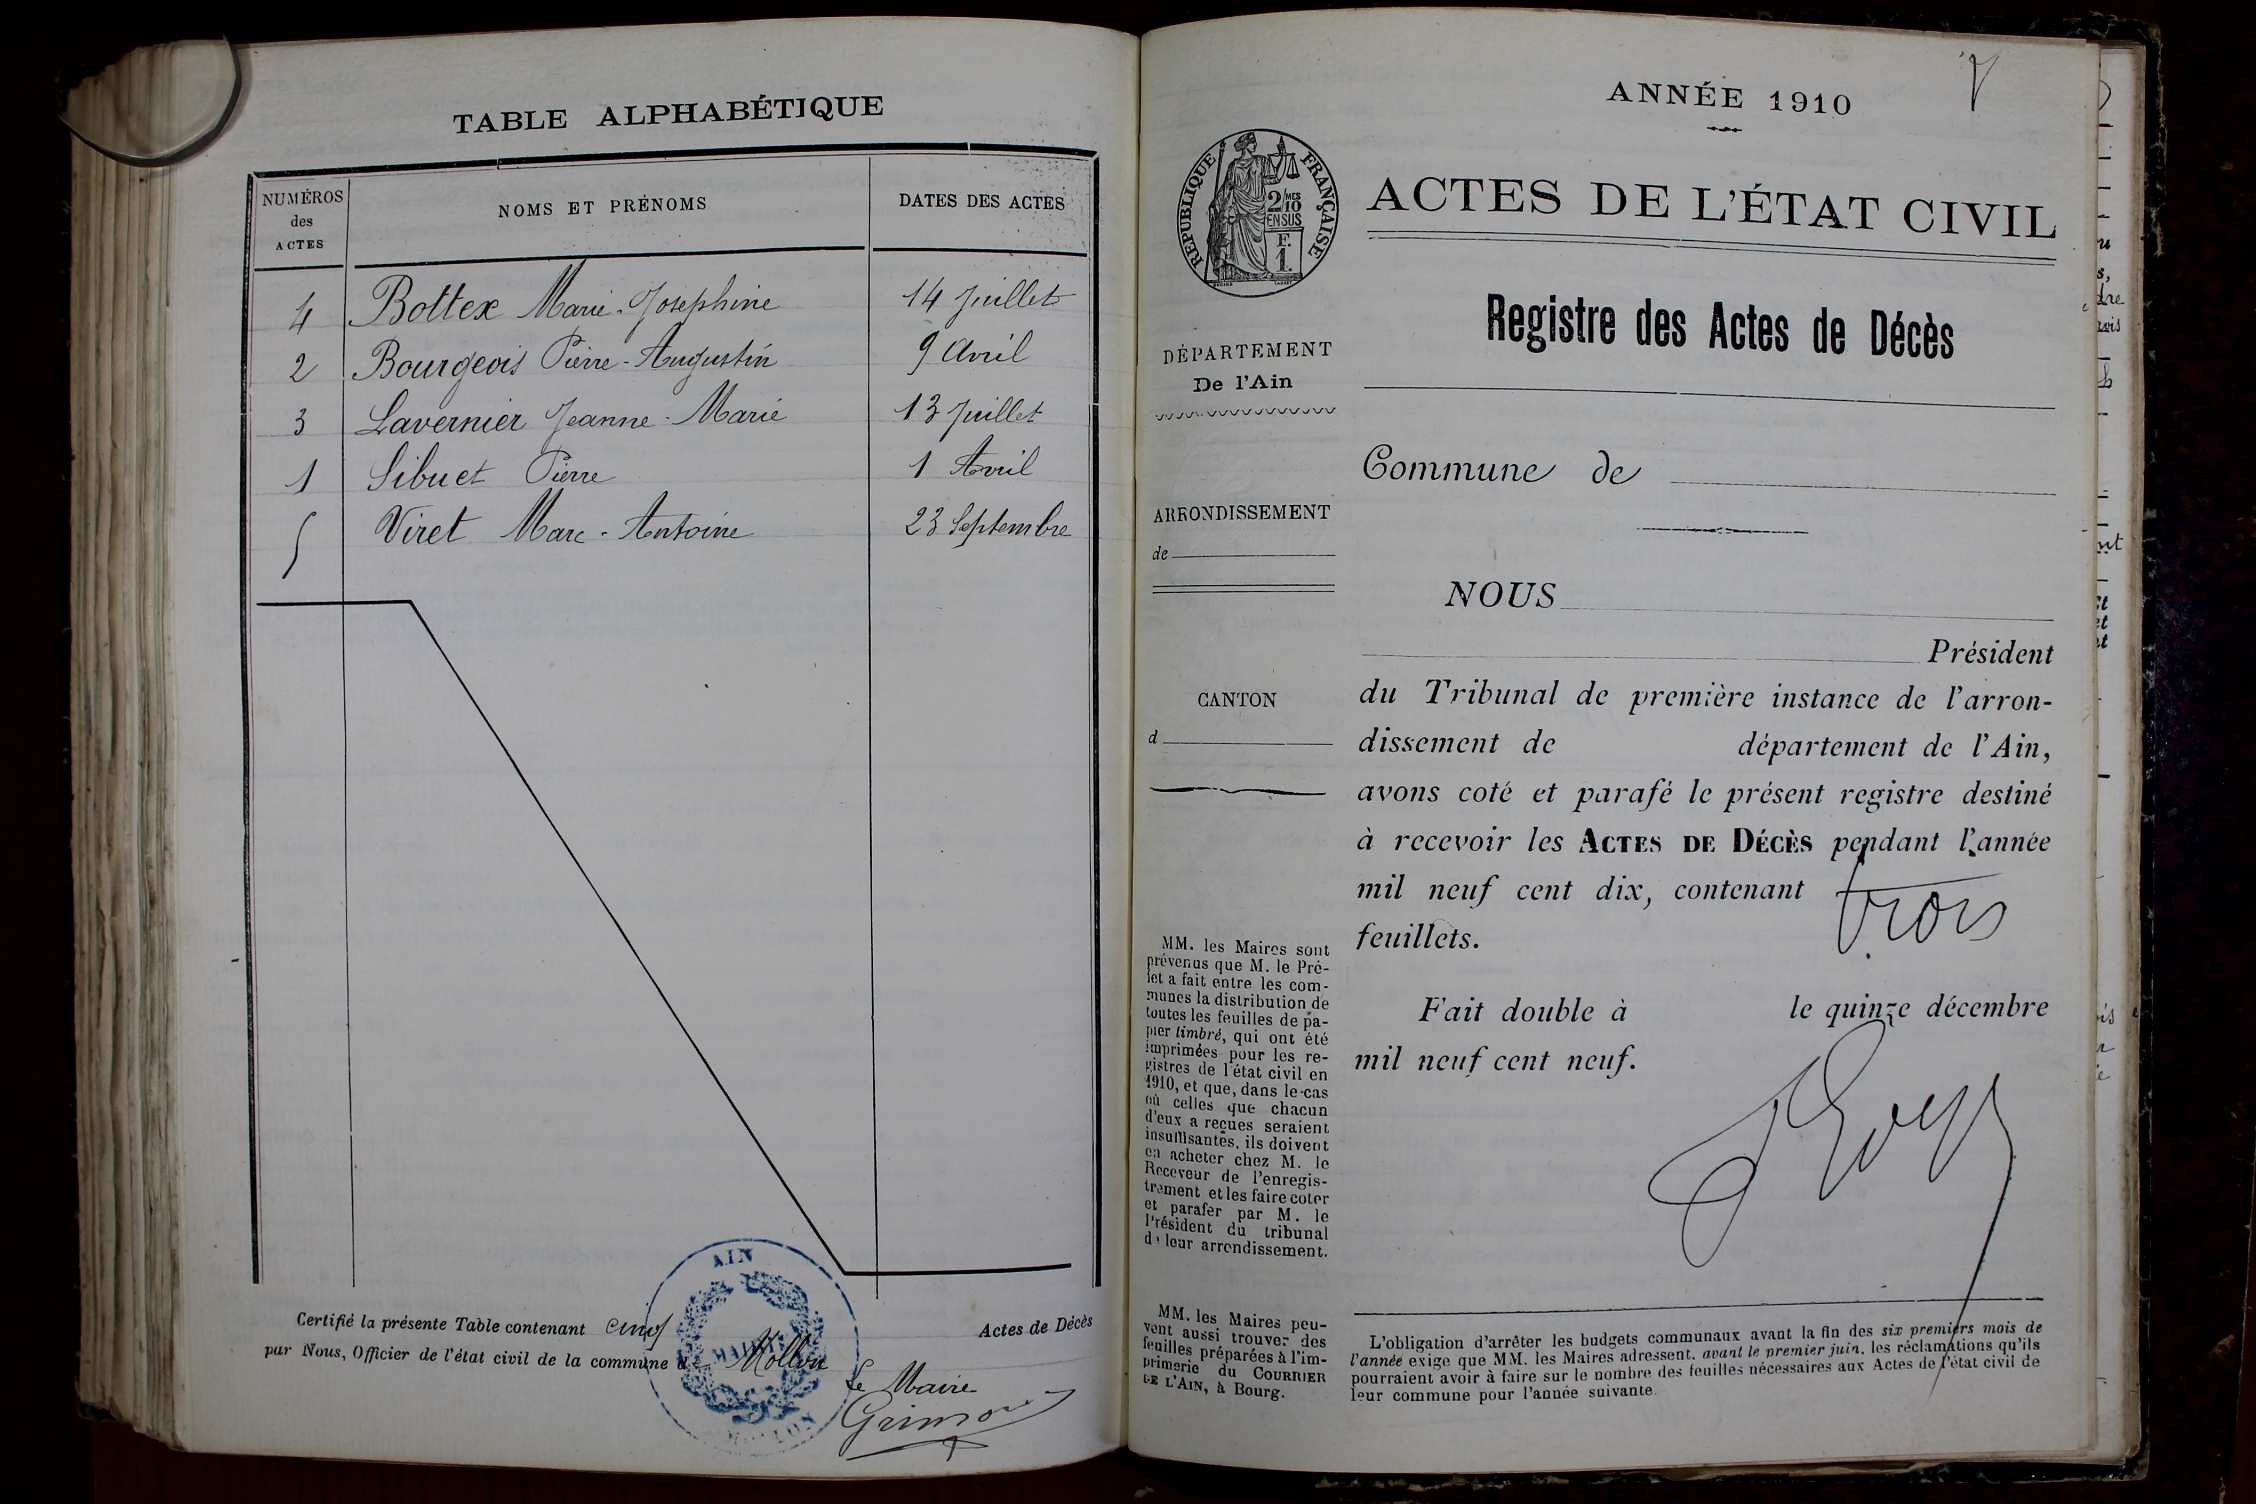 TABLE ALPHABÉTIQUE
NUMÉROS
des
ACTES
NOMS ET PRÉNOMS
DATES DES ACTES
4 Bottex Marie-Josephine 14 Juillet
2 Bourgeois Pierre-Augustin 9 Avril
3 Lavernier Jeanne-Marie 13 Juillet
1 Sibuet Pierre 1 Avril
5 Viret Marc-Antoine 23 Septembre
Certifié la présente Table contenant cinq Actes de Décès
par Nous, Officier de l'état civil de la commune de Mollon
Le Maire
AIN
MAIRIE
MOLLON
ANNÉE 1910
RÉPUBLIQUE FRANÇAISE
2/10 MES
EN SUS
F.
1.
ACTES DE L'ÉTAT CIVIL
Registre des Actes de Décès
DÉPARTEMENT
De l'Ain
Commune de
ARRONDISSEMENT
de
NOUS
Président
CANTON
d
du Tribunal de première instance de l'arron-
dissement de département de l'Ain,
avons coté et parafé le présent registre destiné
à recevoir les ACTES DE DÉCÈS pendant l'année
mil neuf cent dix, contenant trois
feuillets.
Fait double à le quinze décembre
mil neuf cent neuf.
MM. les Maires sont
prévenus que M. le Pré-
fet a fait entre les com-
munes la distribution de
toutes les feuilles de pa-
pier timbré, qui ont été
imprimées pour les re-
gistres de l'état civil en
1910, et que, dans le cas
où celles que chacun
d'eux a reçues seraient
insuffisantes, ils doivent
en acheter chez M. le
Receveur de l'enregis-
trement et les faire coter
et parafer par M. le
Président du tribunal
de leur arrondissement.
MM. les Maires peu-
vent aussi trouver des
feuilles préparées à l'im-
primerie du COURRIER
DE L'AIN, à Bourg.
L'obligation d'arrêter les budgets communaux avant la fin des six premiers mois de
l'année exige que MM. les Maires adressent, avant le premier juin, les réclamations qu'ils
pourraient avoir à faire sur le nombre des feuilles nécessaires aux Actes de l'état civil de
leur commune pour l'année suivante.